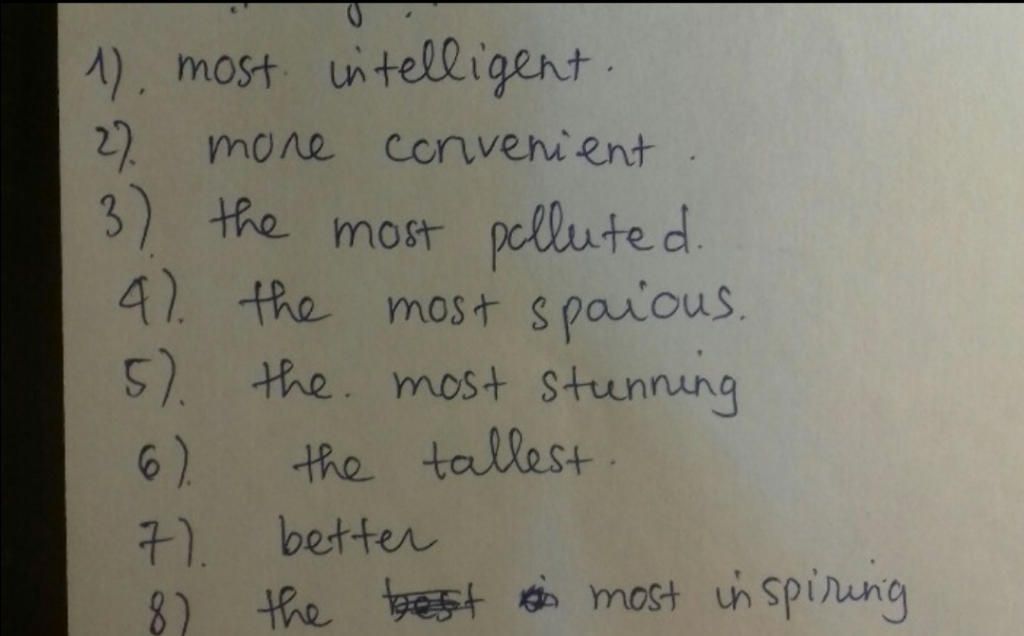 1). most intelligent.
2). more convenient.
3). the most polluted.
4). the most spaious.
5). the. most stunning
6). the tallest.
7). better
8) the most inspiring